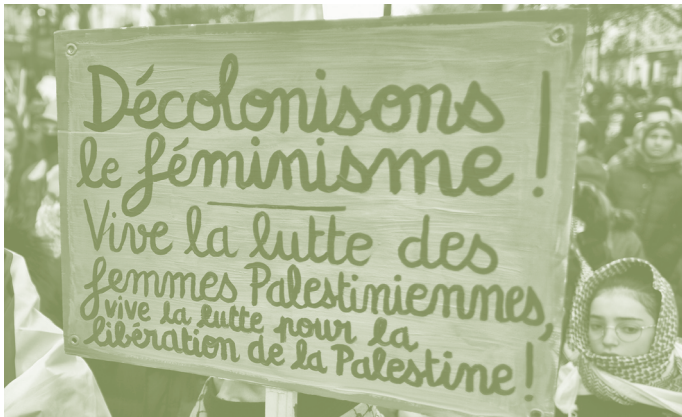 Décolonisons
le féminisme !
Vive la lutte des
femmes Palestiniennes,
vive la lutte pour la
libération de la Palestine !